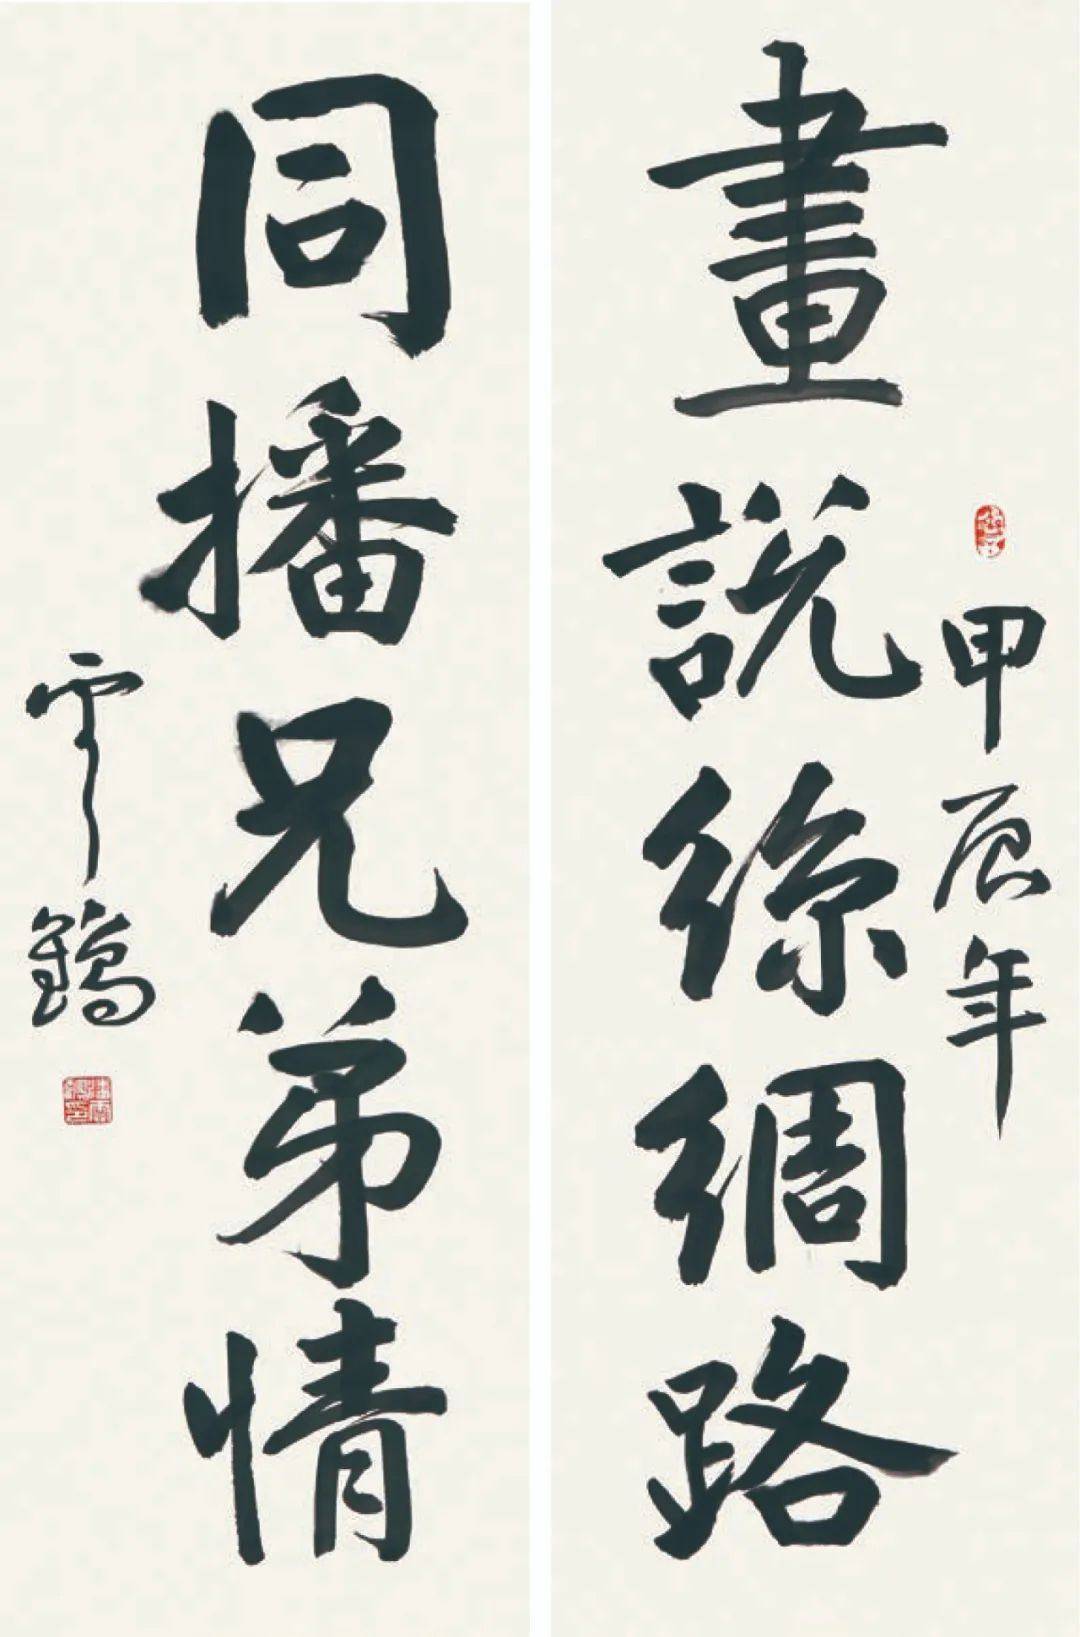 畫說絲綢路
甲辰年
同播兄弟情
雲鶴